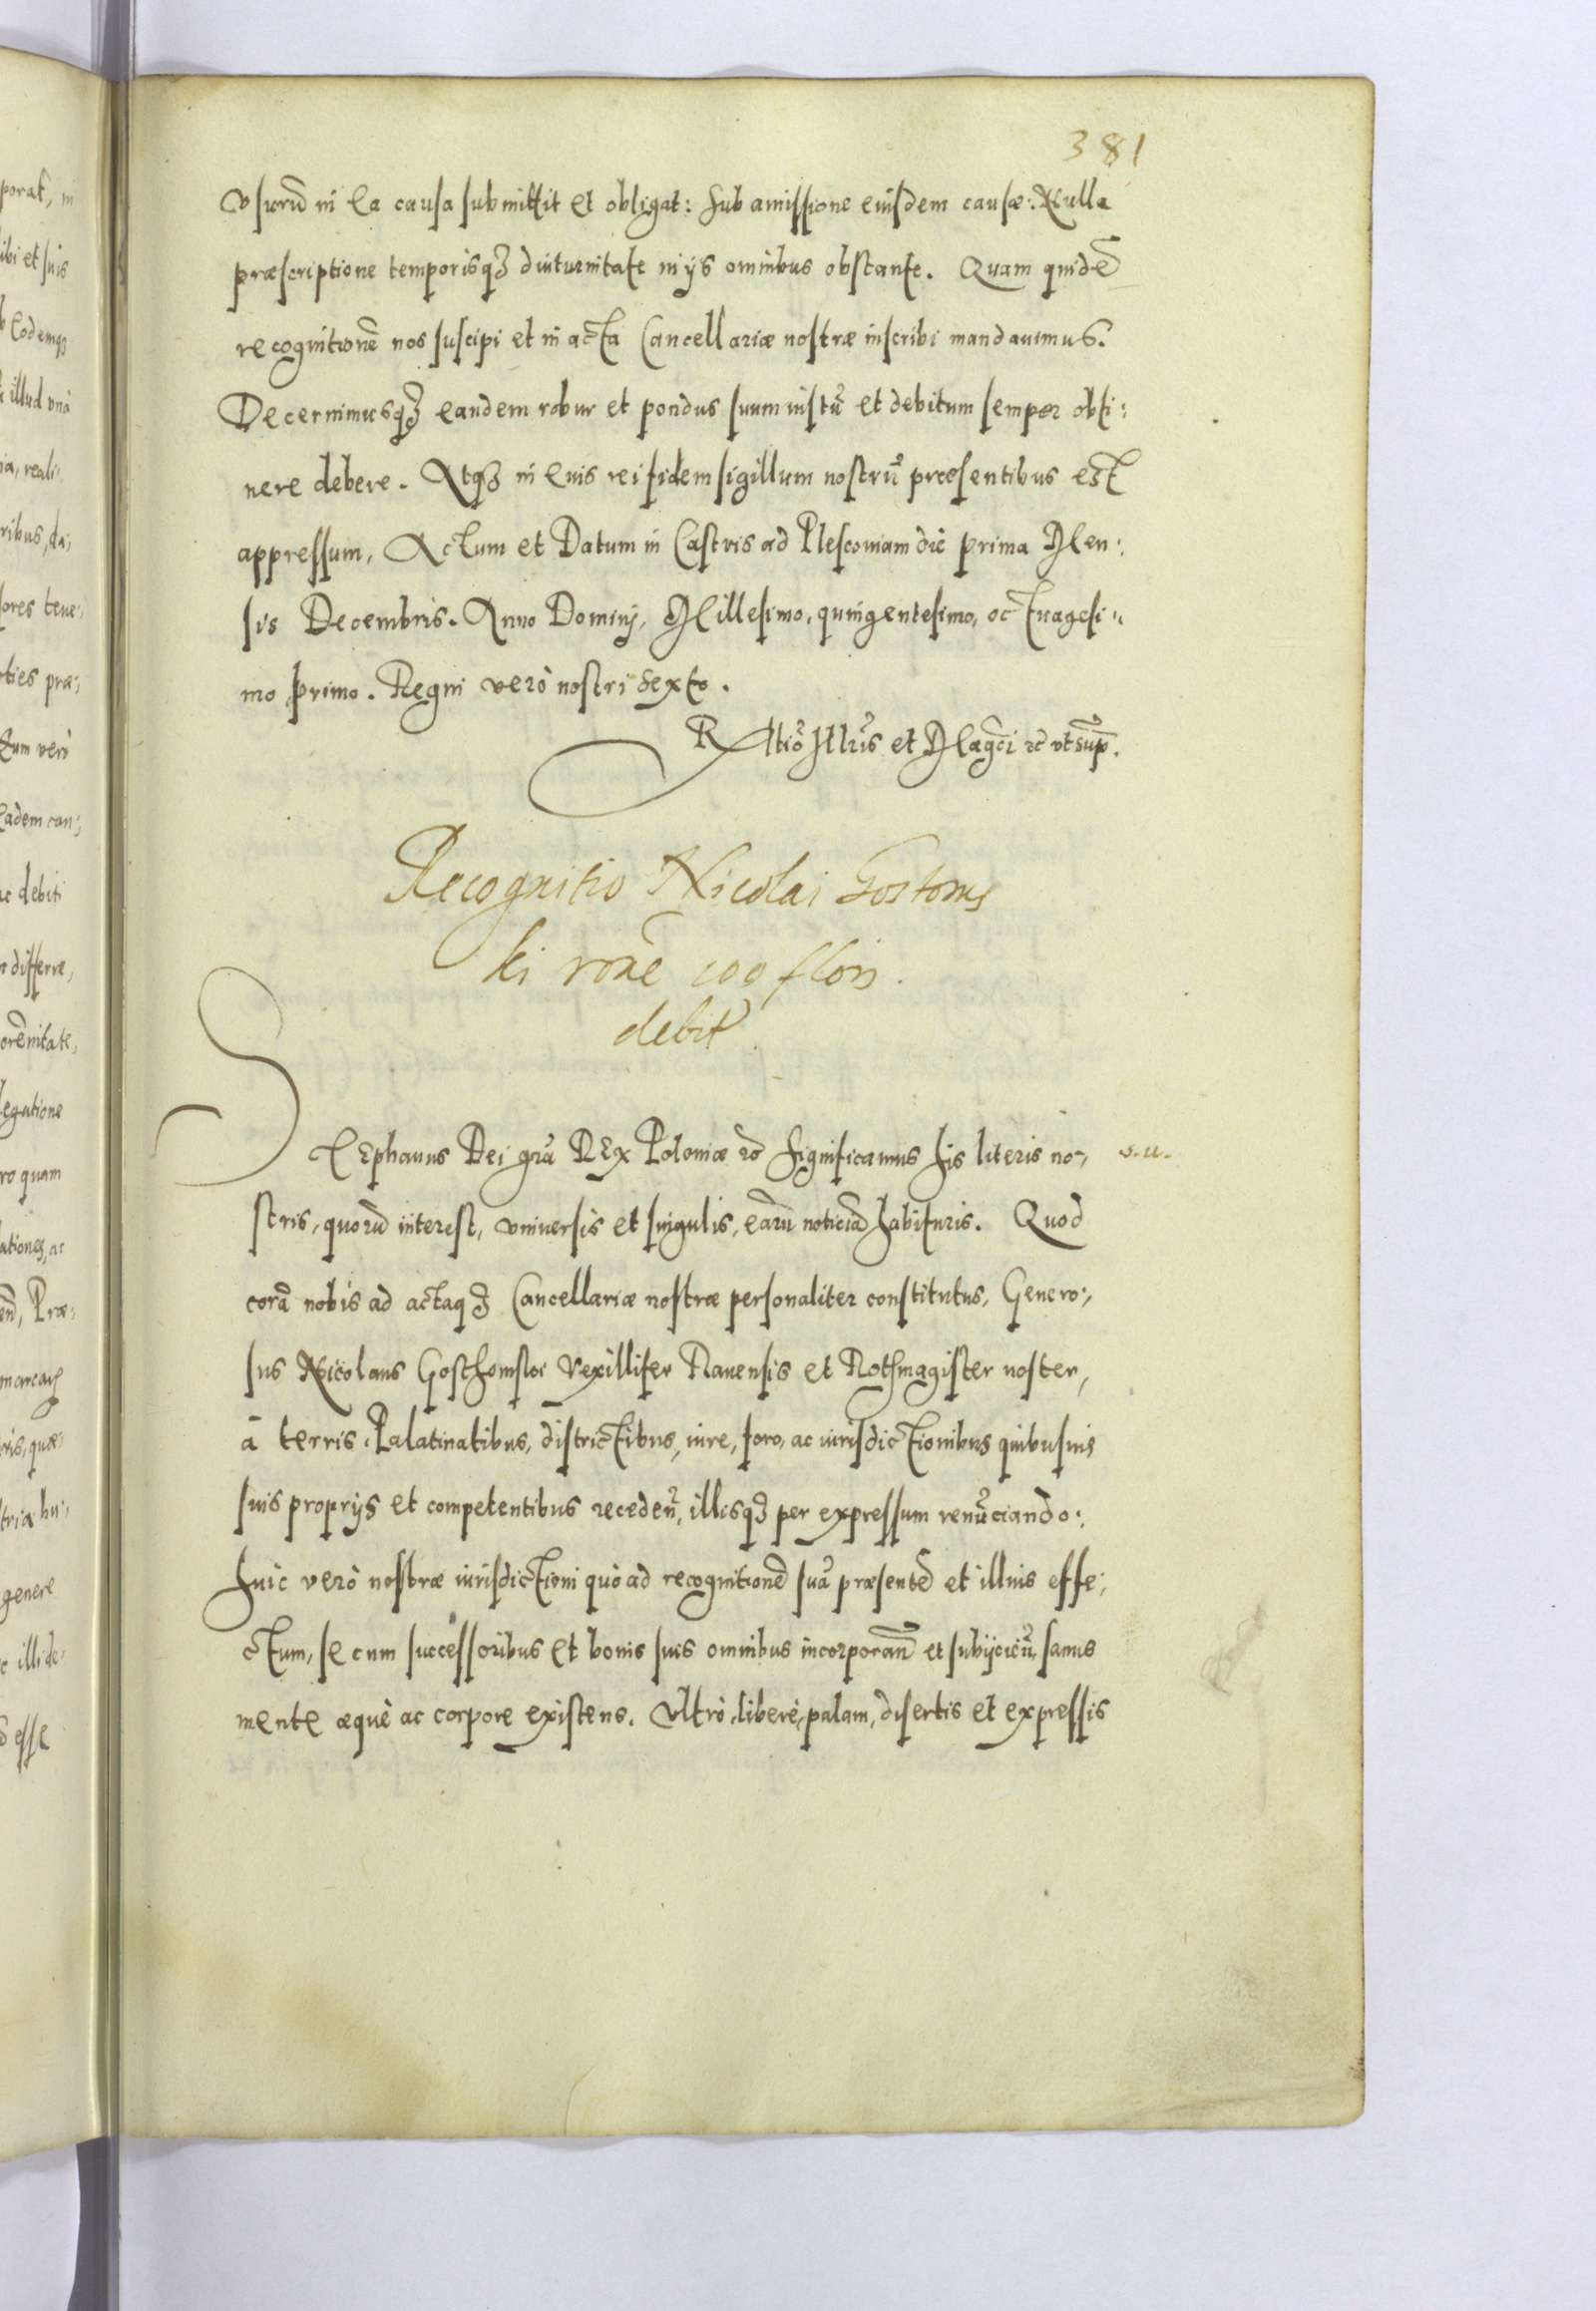 381
vsuorũ in ea causa submittit et obligat: sub amissione eiusdem causæ: Nulla
præscriptione temporisqȝ diuturnitate in ijs omnibus obstante. Quam quidẽ
recognitionẽ nos suscipi et in acta Cancellariæ nostræ inscribi mandauimus.
Decernimusqȝ eandem robur et pondus suum iustũ et debitum semper obti:
nere debere. Atqȝ in euis rei fidem sigillum nostrũ præsentibus est
appressum. Actum et Datum in Castris ad Plescouiam die prima Men:
sis Decembris. Anno Dominj, Millesimo, quingentesimo, octuagesi:
mo primo. Regni verò nostri sexto.
Rłtio Illris et Magci ꝛc vt sup.
Recognitio Nicolai Gostoms
ki rone 100 flor.
debit
Stephanus Dei gra Rex Poloniæ ꝛc Significamus his literis no:
s. u.
stris, quorũ interest, vniuersis et singulis, earũ noticiã habituris. Quod
corã nobis ad actaqȝ Cancellariæ nostræ personaliter constitutus, Genero:
sus Nicolaus Gosthomski Vexillifer Rauensis et Rothmagister noster,
à terris, Palatinatibus, districtibus, iure, foro, ac iurisdictionibus quibusuis
suis proprijs et competentibus recedeñ, illisqȝ per expressum renũciando:
huic verò nostræ iurisdictioni quò ad recognitionẽ suã præsentẽ et illius effe:
ctum, se cum successoribus et bonis suis omnibus incorporañ et subijcieñ, sanus
mente æquè ac corpore existens. Vltrò, liberè, palam, disertis et expressis